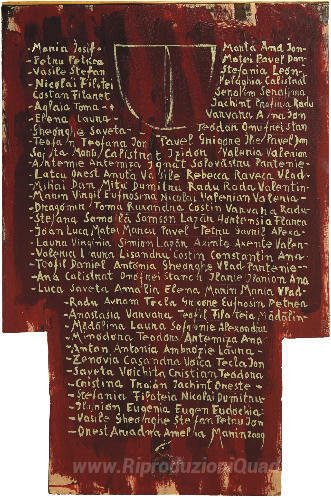 -Maria Iosif-
-Petru Petrea
-Vasile Stefan
-Nicolai Filotei
Costan Filaret
-Aglaia Toma-+
-Elena Laura-
Gheorghe Saveta-
Marta Ana Ion-
Matei Pavel Dan-
Stefania Leon-
Pelaghia Calistrat
Serafim Serafima
Iachint Profira Radu
Varvara Ana Ion-
Teodor Onufrei Stan
Teofan Teofana Ion Pavel Grigore Ilie Pavel Ion
Sofita Maria Calistrat Isidor Valeria Valerian
Arteme Artemiza Ignat Solovastru Pantelie
-Latcu Onest Anuta Vasile Rebecca Raveca Vlad-
-Mihai Dan Mitu Dumitru Radu Rada Valentin-
-Marin Virgil Eufrosina Nicolai Valerian Valeria-
-Dragomir Toma Ruxandra Costin Varvara Radu-
-Stefana Samoila Samson Lazar Hortensia Filaret
-Ioan Luca Matei Marcu Pavel Petru Gavril Alexa-
-Laura Virginia Simion Lazar Axinte Axente Valer-
-Valerica Laura Lisandru Costin Constantin Ana-
-Teofil Daniel Antonia Gheorghe Vlad Pantelie-
-Ana Calistrat Onufrei Stancu Ilarie Damian Ana
-Luca Saveta Amalia Elena Marin Maria Vlad-
-Radu Avram Tecla Grigore Eufrosin Petrea
-Anastasia Varvara Teofil Filoteia Madalin-
-Madalina Laura Sofronie Alexandru
-Minodora Teodora Artemiza Ana-
-Anton Antonia Ambrozie Laura-
-Zenovia Casandra Voica Tecla Ion
-Saveta Voichita Cristian Teodora
-Cristina Traian Iachint Oreste-
-Stefania Filoteia Nicolai Dumitru-
-Ilarion Eugenia Eugen Eudochia-
-Vasile Gheorghe Stefan Petru Ion
-Onest Ariadna Amelia Marin 2009
www.RiproduzioniQuad